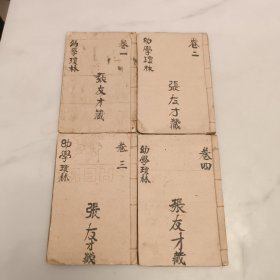 卷一
幼學瓊林
張友才藏
卷二
幼學瓊林
張友才藏
卷三
幼學瓊林
張友才藏
卷四
幼學瓊林
張友才藏